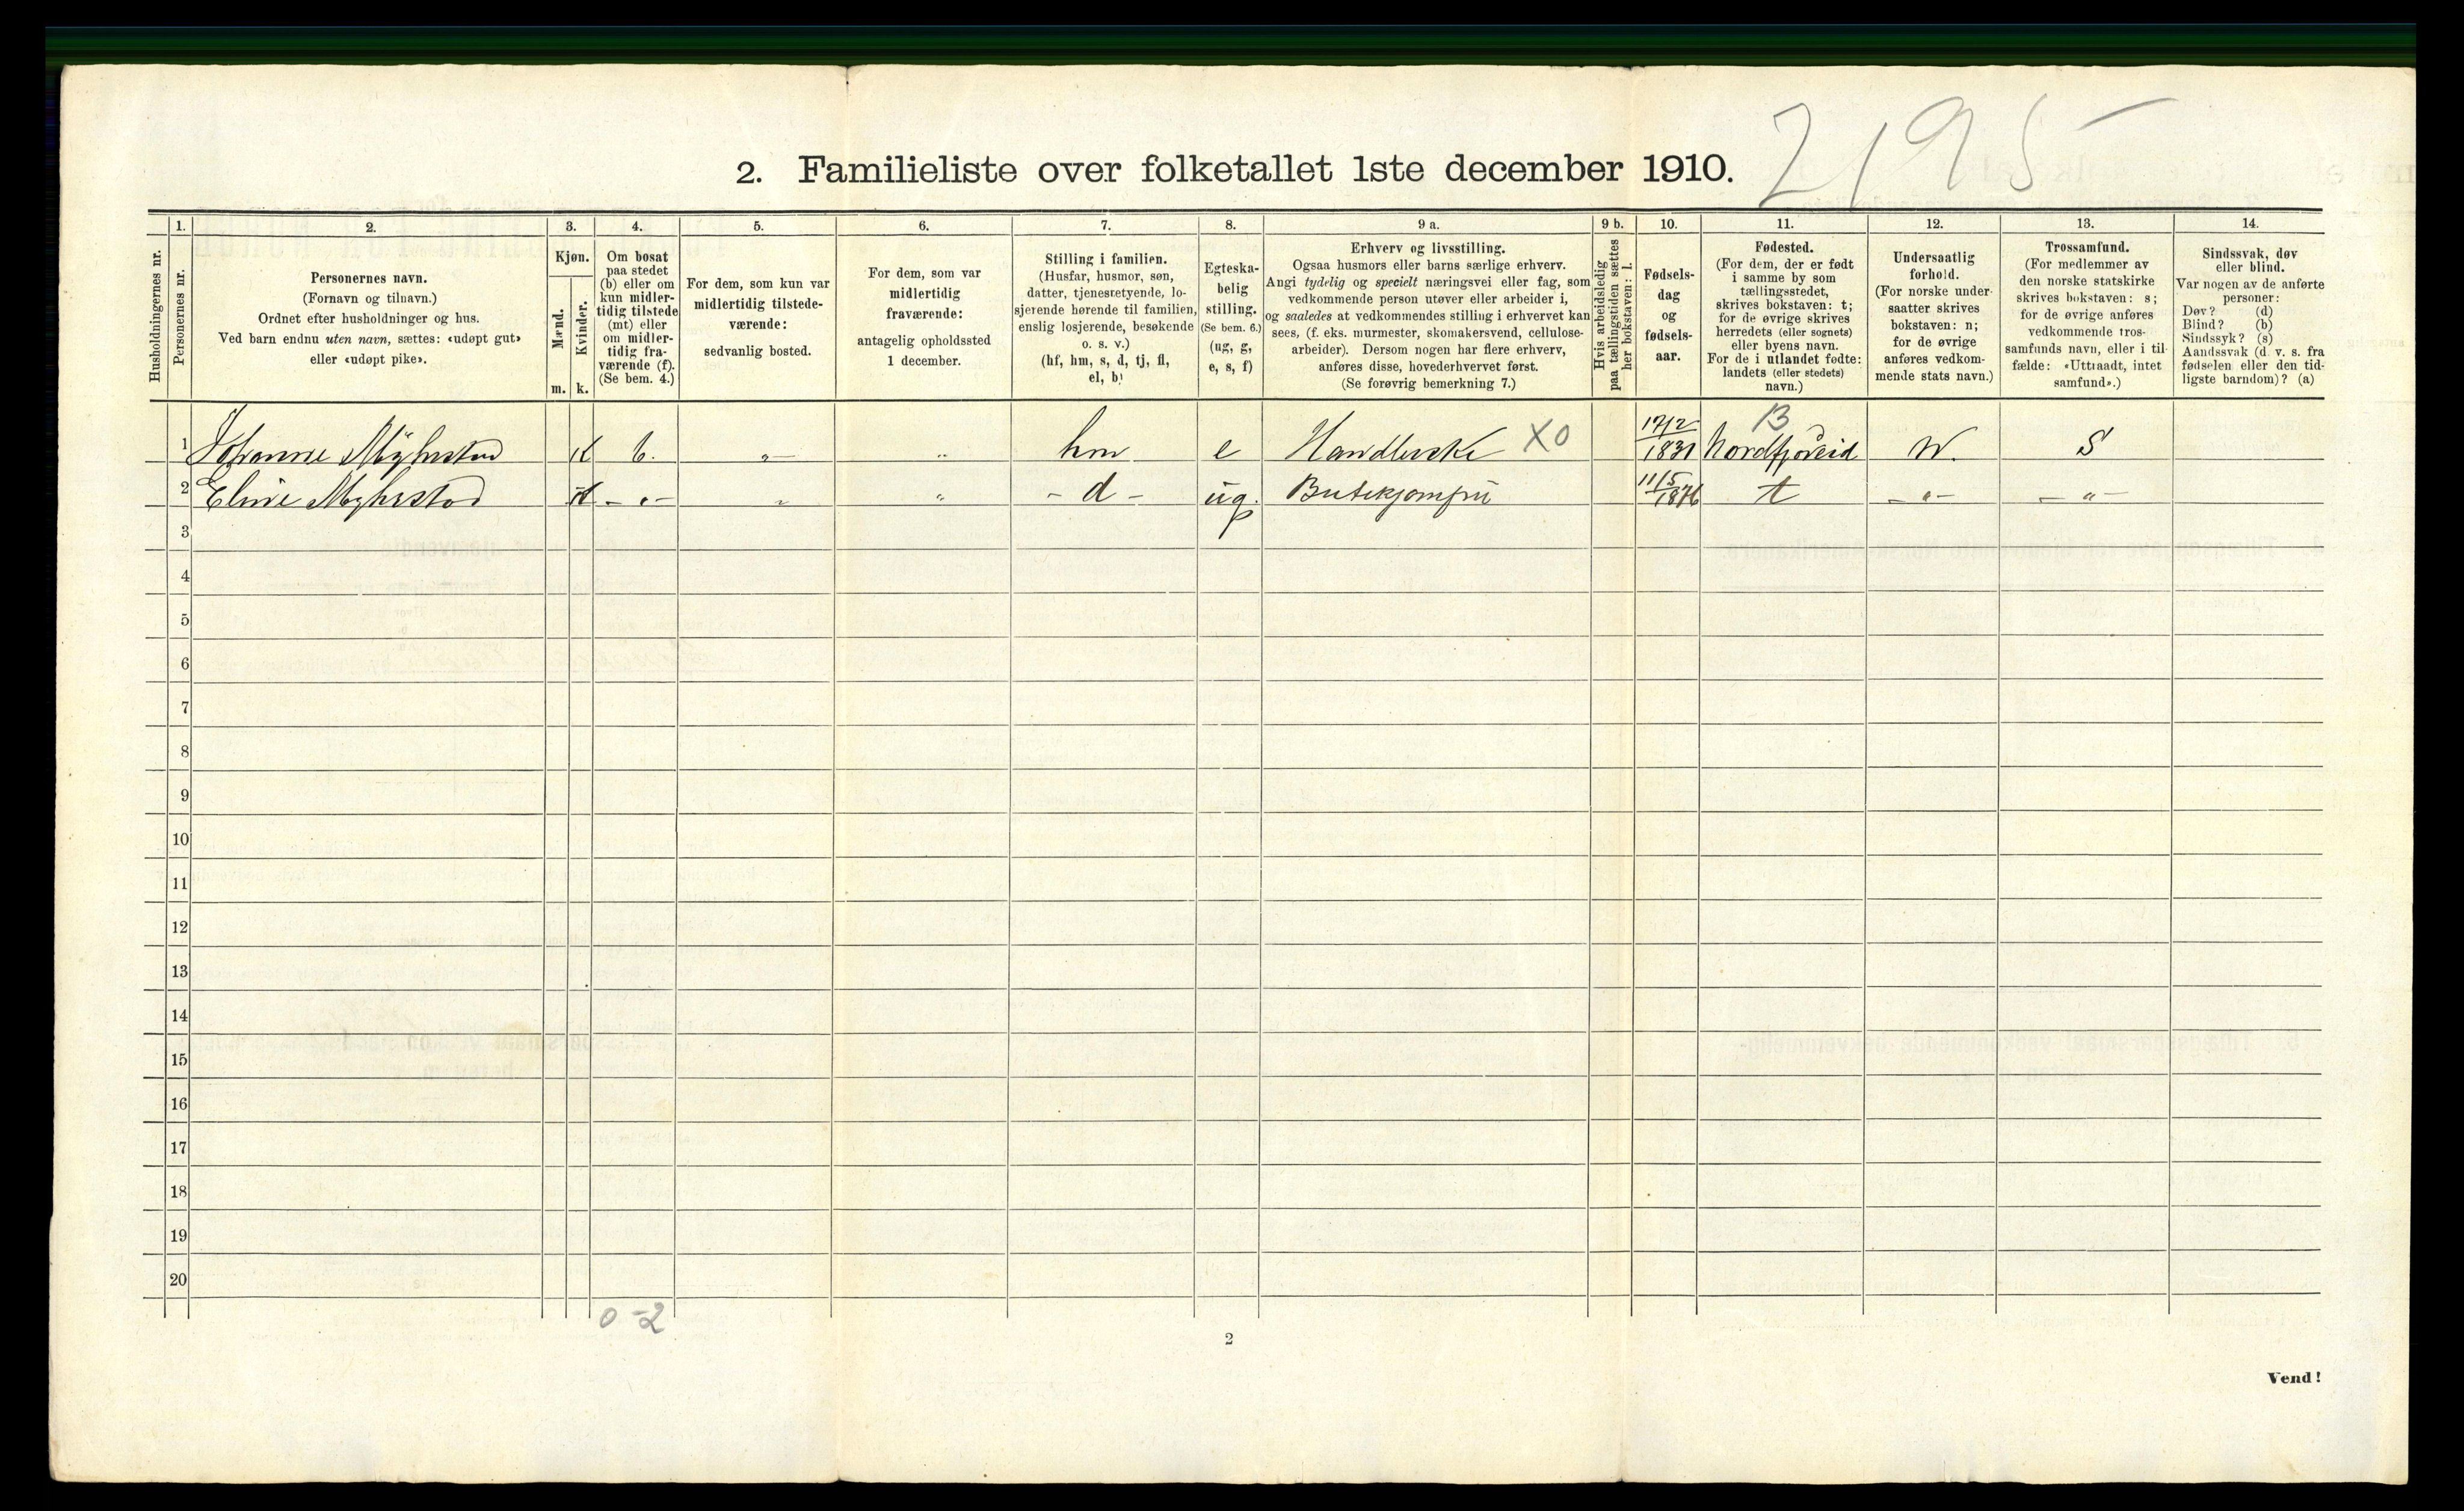 2195
2. Familieliste over folketallet 1ste december 1910.
Husholdningernes nr.
1.
Personernes nr.
2.
Personernes navn.
(Fornavn og tilnavn.)
Ordnet efter husholdninger og hus.
Ved barn endnu uten navn, sættes: «udøpt gut»
eller «udøpt pike».
3.
Kjøn.
Mænd.
Kvinder.
m. k.
4.
Om bosat
paa stedet
(b) eller om
kun midler-
tidig tilstede
(mt) eller
om midler-
tidig fra-
værende (f).
(Se bem. 4.)
5.
For dem, som kun var
midlertidig tilstede-
værende:
sedvanlig bosted.
6.
For dem, som var
midlertidig
fraværende:
antagelig opholdssted
1 december.
7.
Stilling i familien.
(Husfar, husmor, søn,
datter, tjenestetyende, lo-
sjerende hørende til familien,
enslig losjerende, besøkende
o. s. v.)
(hf, hm, s, d, tj, fl,
el, b)
8.
Egteska-
belig
stilling.
(Se bem. 6.)
(ug, g,
e, s, f)
9 a.
Erhverv og livsstilling.
Ogsaa husmors eller barns særlige erhverv.
Angi tydelig og specielt næringsvei eller fag, som
vedkommende person utøver eller arbeider i,
og saaledes at vedkommendes stilling i erhvervet kan
sees, (f. eks. murmester, skomakersvend, cellulose-
arbeider). Dersom nogen har flere erhverv,
anføres disse, hovederhvervet først.
(Se forøvrig bemerkning 7.)
9 b.
Hvis arbeidsledig
paa tællingstiden sættes
her bokstaven: l.
10.
Fødsels-
dag
og
fødsels-
aar.
11.
Fødested.
(For dem, der er født
i samme by som
tællingsstedet,
skrives bokstaven: t;
for de øvrige skrives
herredets (eller sognets)
eller byens navn.
For de i utlandet fødte:
landets (eller stedets)
navn.)
12.
Undersaatlig
forhold.
(For norske under-
saatter skrives
bokstaven: n;
for de øvrige
anføres vedkom-
mende stats navn.)
13.
Trossamfund.
(For medlemmer av
den norske statskirke
skrives bokstaven: s;
for de øvrige anføres
vedkommende tros-
samfunds navn, eller i til-
fælde: «Uttraadt, intet
samfund».)
14.
Sindssvak, døv
eller blind.
Var nogen av de anførte
personer:
Døv? (d)
Blind? (b)
Sindssyk? (s)
Aandssvak (d. v. s. fra
fødselen eller den tid-
ligste barndom)? (a)
1 Johanne Myhrstad K b. „ „ hm e Handlerske XO 17/2 1831 B Nordfjordeid N. S
2 Eline Myhrstad K - „ - „ „ - d - ug. Butikjomfru 11/5 1876 t - „ - - „ -
3
4
5
6
7
8
9
10
11
12
13
14
15
16
17
18
19
20
0 - 2
2
Vend!